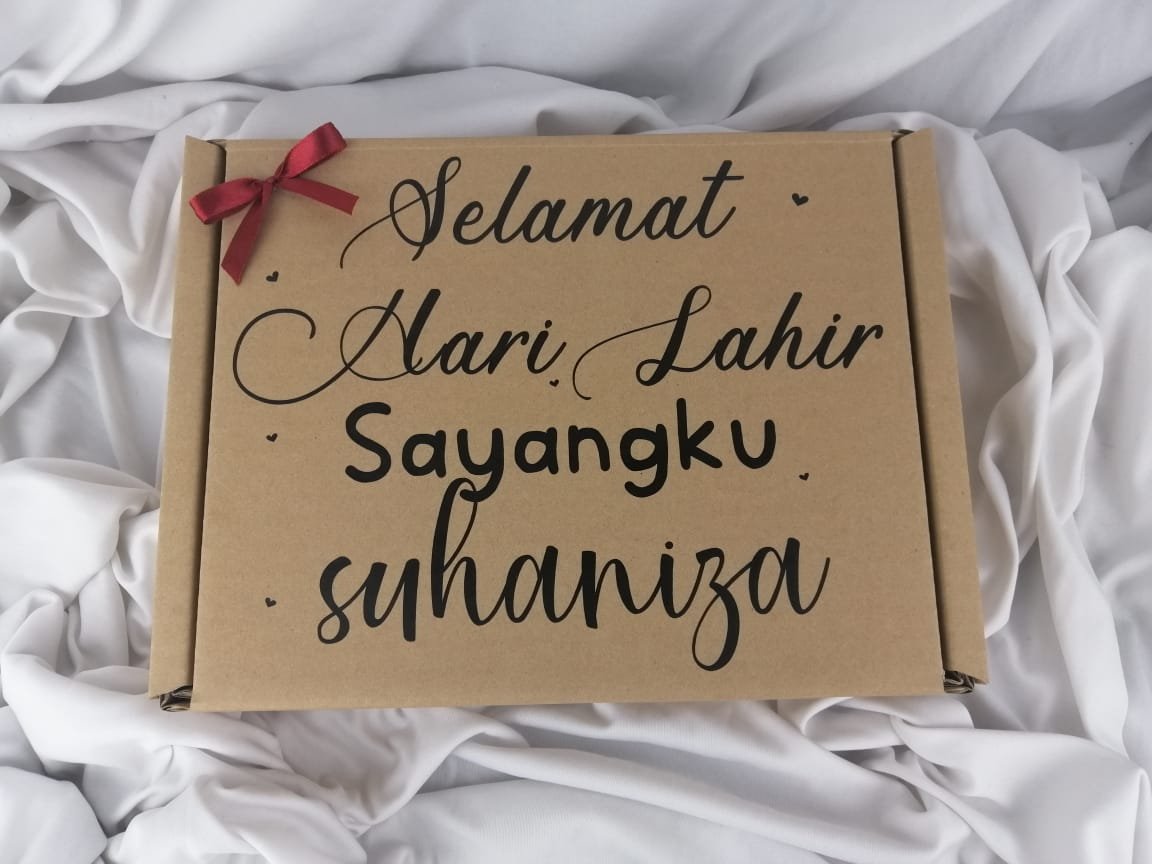 Selamat
Hari Lahir
Sayangku
suhaniza